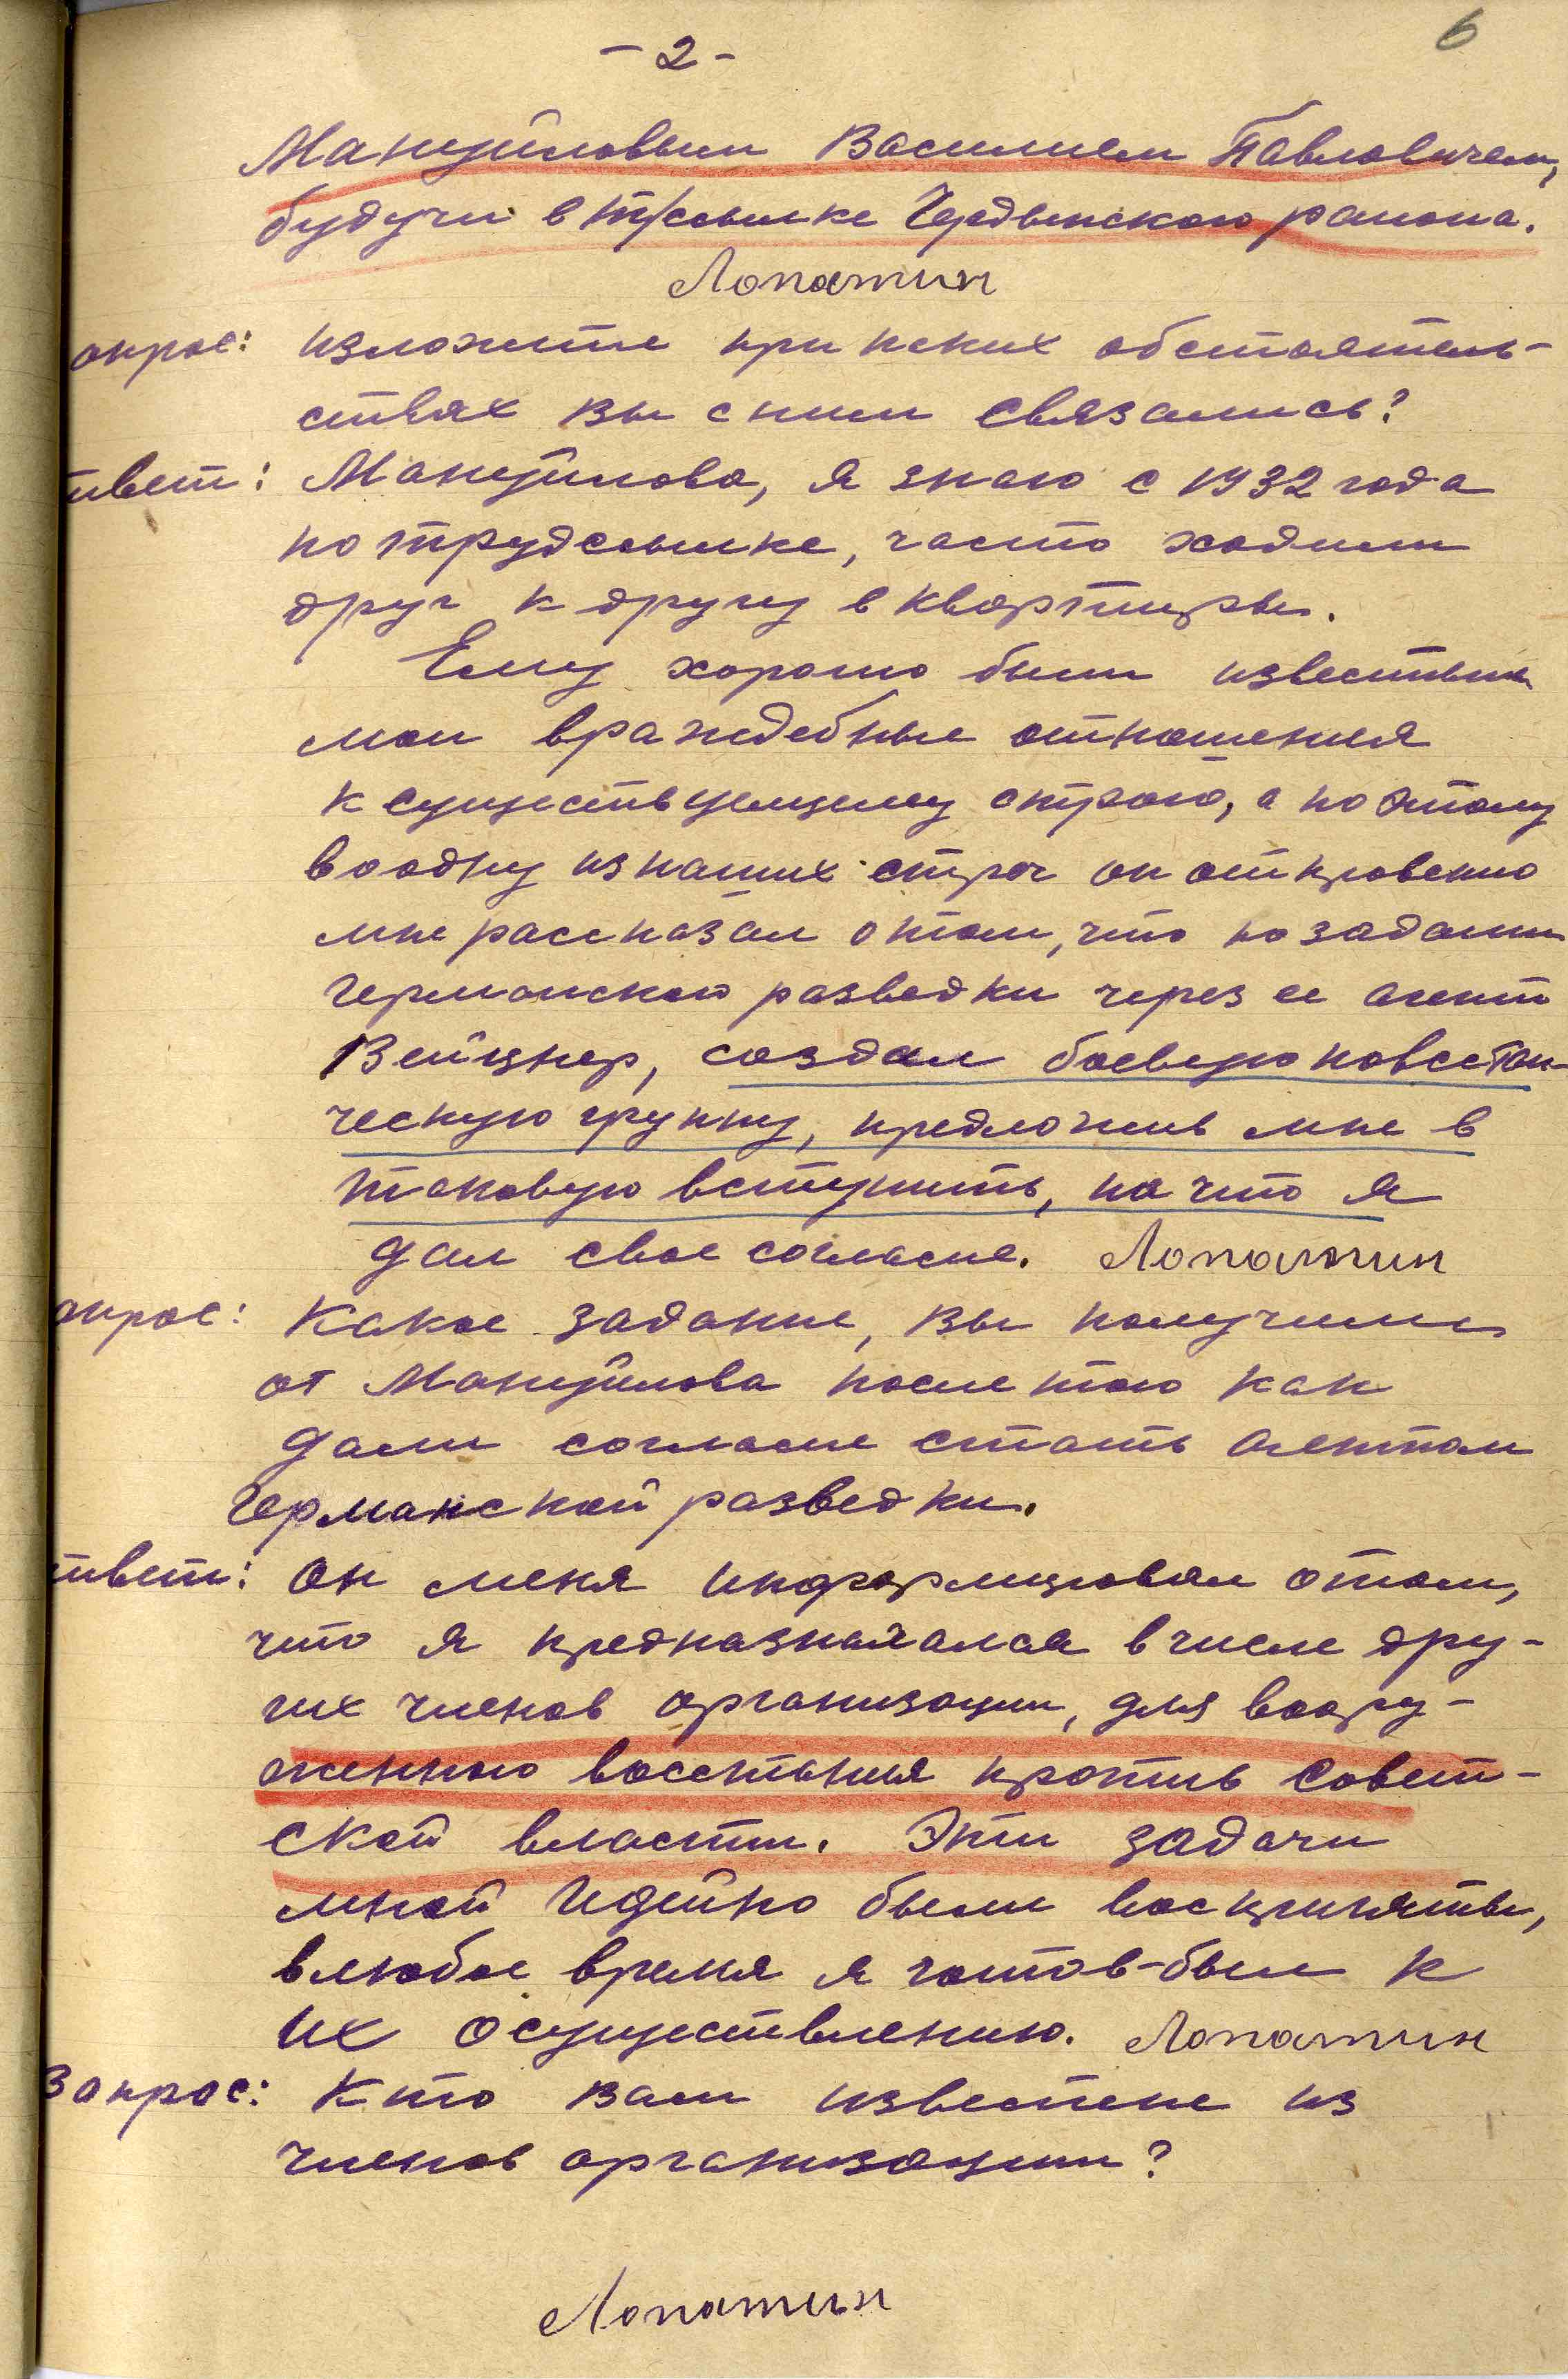 - 2 -
6
Мануйловым Василием Павловичем,
будучи в т/ссылке Чердынского района.
Лопатин
опрос: изложите при каких обстоятель-
ствах вы с ним связались?
твет: Мануйлова, я знаю с 1932 года
по трудссылке, часто ходили
друг к другу в квартиры.
Ему хорошо были известны
мои враждебные отношения
к существующему строю, а поэтому
в одну из наших встреч он откровенно
мне рассказал о том, что по задании
Германской разведки через ее агент
Вейцнер, создал боевую повстан-
ческую группу, предложив мне в
таковую вступить, на что я
дал свое согласие. Лопатин
опрос: Какое задание, вы получили
от Мануйлова после того как
дали согласие стать агентом
Германской разведки.
твет: Он меня информировал о том,
что я предназначался в числе дру-
гих членов организации, для воору-
женного восстания против Совет-
ской власти. Эти задачи
мной идейно были восприняты,
в любое время я готов-был к
их осуществлению. Лопатин
Вопрос: Кто вам известене из
членов организации?
Лопатин